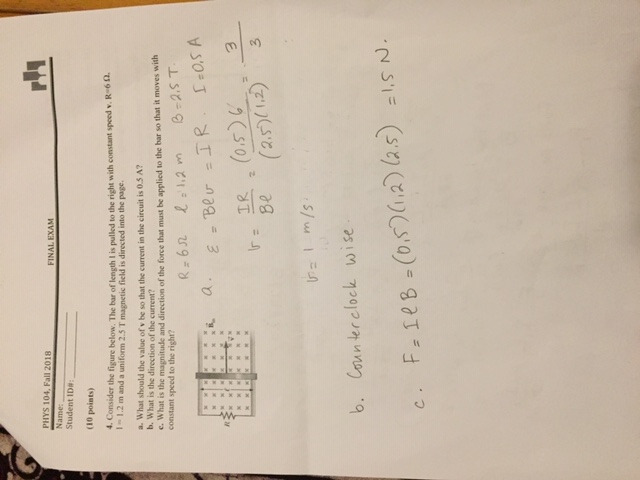 PHYS 104, Fall 2018
FINAL EXAM
Name:
Student ID#:
(10 points)
4. Consider the figure below. The bar of length l is pulled to the right with constant speed v. R=6 Ω,
l = 1.2 m and a uniform 2.5 T magnetic field is directed into the page.
a. What should the value of v be so that the current in the circuit is 0.5 A?
b. What is the direction of the current?
c. What is the magnitude and direction of the force that must be applied to the bar so that it moves with
constant speed to the right?
R = 6Ω   l = 1,2 m   B = 2,5 T
a. ε = Blv = IR. I = 0,5 A
v = IR / Bl = (0,5) 6 / (2,5)(1,2) = 3 / 3
v = 1 m/s.
b. Counterclock wise.
c. F = IlB = (0,5)(1,2)(2,5) = 1,5 N.